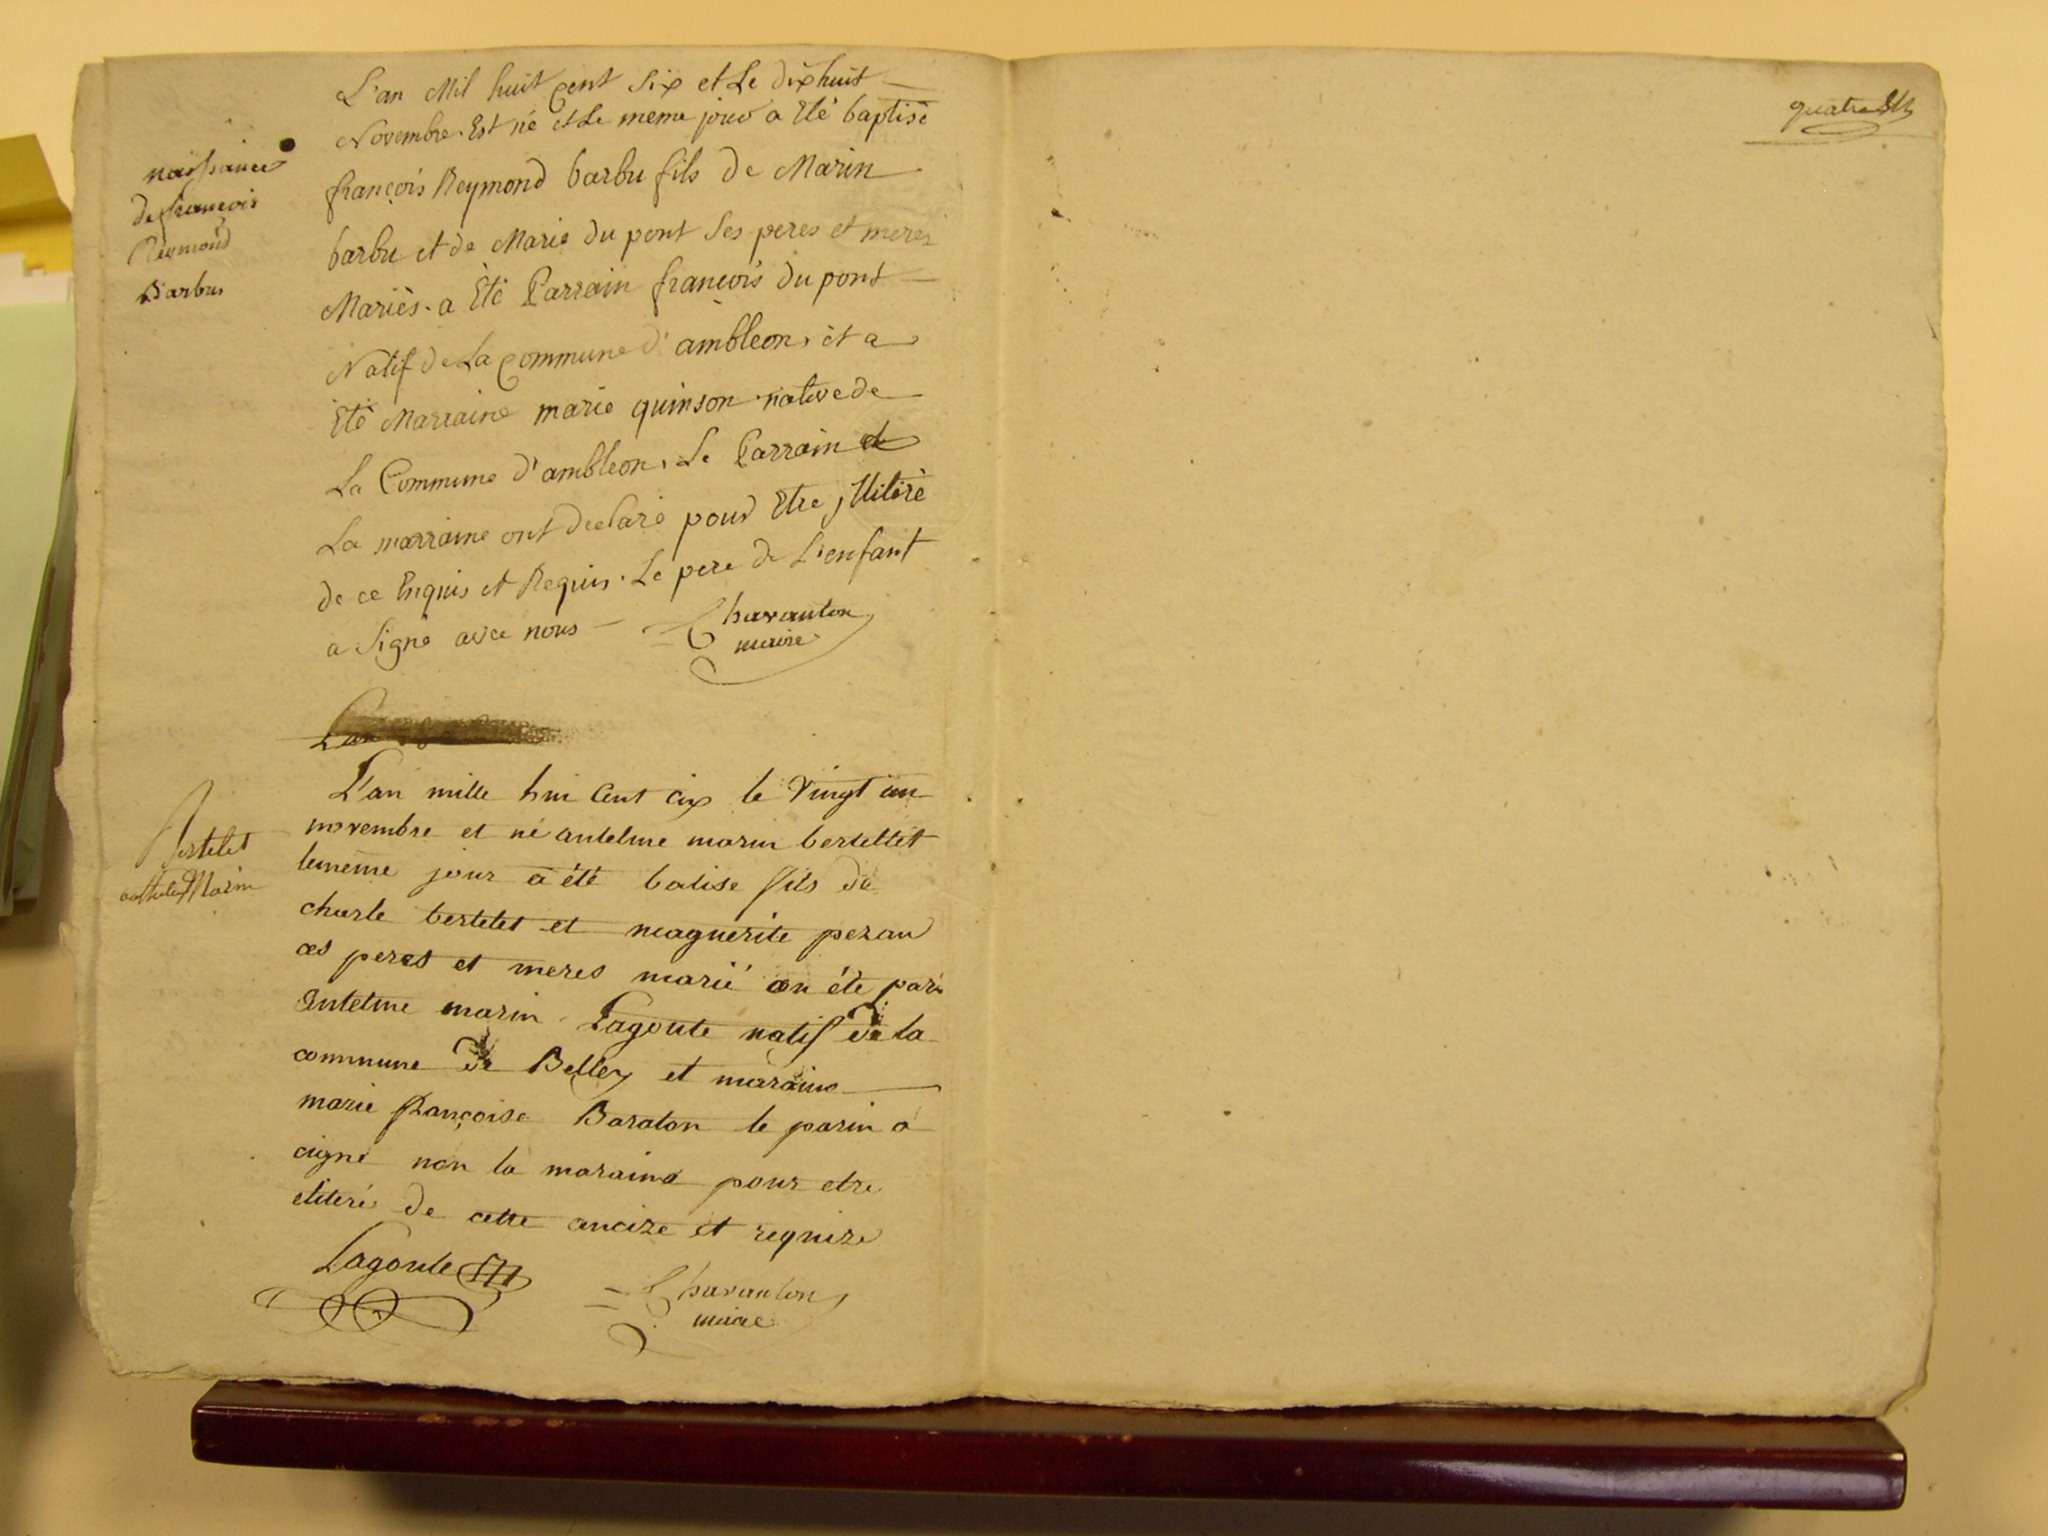 L'an Mil huit cent Six et Le dix huit
Novembre. Est né et Le meme jour a Eté baptisé
françois Reymond barbu fils de Marin
barbu et de Marie du pont Ses peres et meres
Mariés. a Eté Parrain françois du pont
Natif de La commune d'ambleon, et a
Eté Marraine marie quinson native de
La Commune d'ambleon, Le Parrain et
La marraine ont declaré pour Etre illiteré
de ce Enquis et Requis. Le pere de L'enfant
a Signé avec nous
Chavanton
maire
naissance
de françois
Reymond
Barbus
L'an
L'an mille hui cent cix le vingt un
novembre et né antelme marin bertellet
lememe jour a été batise fils de
charle bertelet et maguerite pezau
ces peres et meres marié on éte pari
Antelme marin Lagoute natif de la
commune de Belley et maraine
marie françoise Baraton le parin a
cigné non la maraine pour etre
eliteré de cette ancize et requize
Lagoute
Chavanton
maire
Bertelet
Marin
quatre